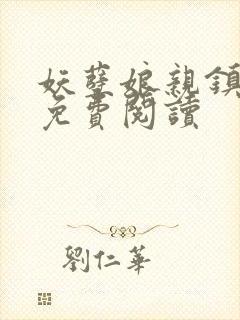 妖孽娘親鎮
免費閱讀
劉仁華